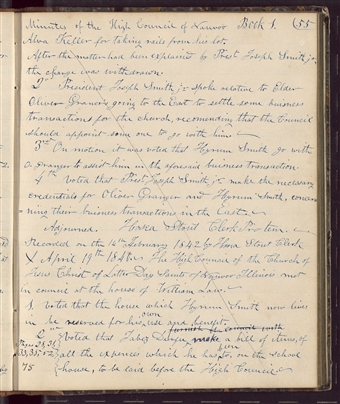 Minutes of the High Council of Nauvoo Book 1. (55
Alva Keller for taking rails from his lot.
After the matter had been explained by Prest Joseph Smith jr
the charge was withdrawn.
2nd President Joseph Smith jr spoke relative to Elder
Oliver Granger's going to the East to settle some business
transactions for the church, recommending that the Council
should appoint some one to go with him
3rd On motion it was voted that Hyrum Smith go with
O. Granger to assist him in the aforesaid business transaction
4th Voted that Prest Joseph Smith jr make the necessary
credentials for Oliver Granger and Hyrum Smith, concer-
ning their business transactions in the East.
Adjourned. Hosea Stout Clerk Pro tem.
Recorded on the 14th February 1842 by Hosea Stout Clerk
X April 19th 1840. The High Council of the Church of
Jesus Christ of Latter Day Saints of Nauvoo Illinois met
in council at the house of William Law.
1. Voted that the house which Hyrum Smith now lives
in be reserved for his own use and benefit.
furnish the council with
2nd Voted that a bill of items, of
all the expences which he has on the school
75 house, to be laid before the High Council